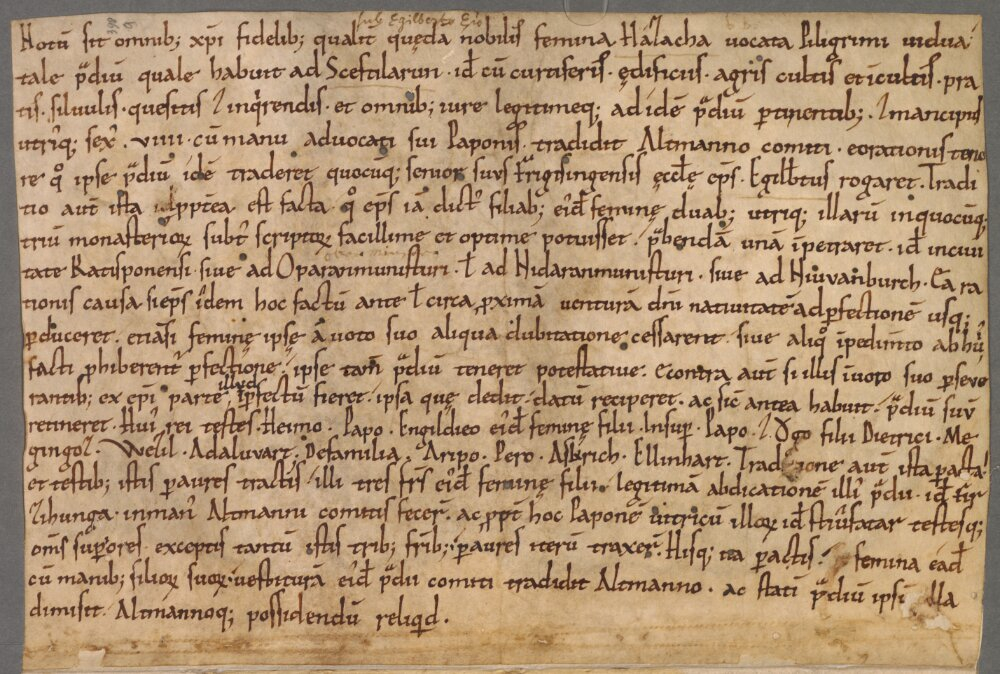 sub Egilberto Epo
Notū sit omnib; xp̄i fidelib; qualit quędā nobilis femina Hāłacha vocata Piligrimi vidua
tale p̄diū quale habuit ad Sceftilarun · id ē cū curtiferis · ędificiis · agris cultis et ı̄cultis · pra
tis · silvulis · quesitis ł inq̇rendis · et omnib; iure legitimeq; ad idē p̄diū ptinentib; · ł mancipiis
utriq; sex' · viiii · cū manu advocati sui Paponis · tradidit Altmanno comiti · eo rationis teno
re qo ipse p̄diū idē traderet quocūq; senior suus Frigisingensis ęccłę ep̄s · Egilb̄tus rogaret · Tradi
tio aut ista ppterea est facta · qo ep̄s iā dict' filiab; eid' feminę duab; utriq; illarū in quocūq;
triū monasteriorꝝ subt' scriptorꝝ facillime et optime potuisset · p̄bendā unā īpetraret · id ē in civi
tate Ratisponensi · sive ad Opararimunisturi · ł ad Nidararimunisturi · sive ad Niuvanburch · Ea ra
tionis causa si ep̄s idem hoc factū ante ł circa proximā venturā dn̄i nativitatē ad pfectionē usq;
pduceret · etiāsi feminę ipsę a voto suo aliqua dubitatione cessarent · sive aliqo īpedimto ab hui'
facti phiberent' pfectione · ipse tam̄ p̄diū teneret potestative · Econtra aut si illis ī voto suo pseve
rantib; ex ep̄i parte illud īpfectū fieret · ipsa quę dedit datū reciperet · ac sic antea habuit · p̄diū suū
retineret · Hui' rei testes · Heimo · Papo · Engildieo eid' feminę filii · Insup · Papo · ł Ogo filii Dietrici · Me
gingoz · Welil · Adaluvart · De familia · Aripo · Pero · Asbrich · Ellinhart · Traditione aut ista pacta
et testib; istis p aures tractis · illi tres fr̄s eid' feminę filii · legitimā abdicationē illi' p̄dii · id ē fir
ihunga · in man' Altmanni comitis fecer' · ac ppt' hoc Paponē vitricū illorꝝ id ē stiuffatar testesq;
om̄s supiores exceptis tantū istis trib; fr̄ib; p aures iterū traxer' · Hisq; ita pactis · femina ead'
cū manib; filiorꝝ suorꝝ vestiturā eid' p̄dii comiti tradidit Altmanno · ac stati p̄diū ipsi illa
dimisit · Altmannoq; possidendū reliqid ·